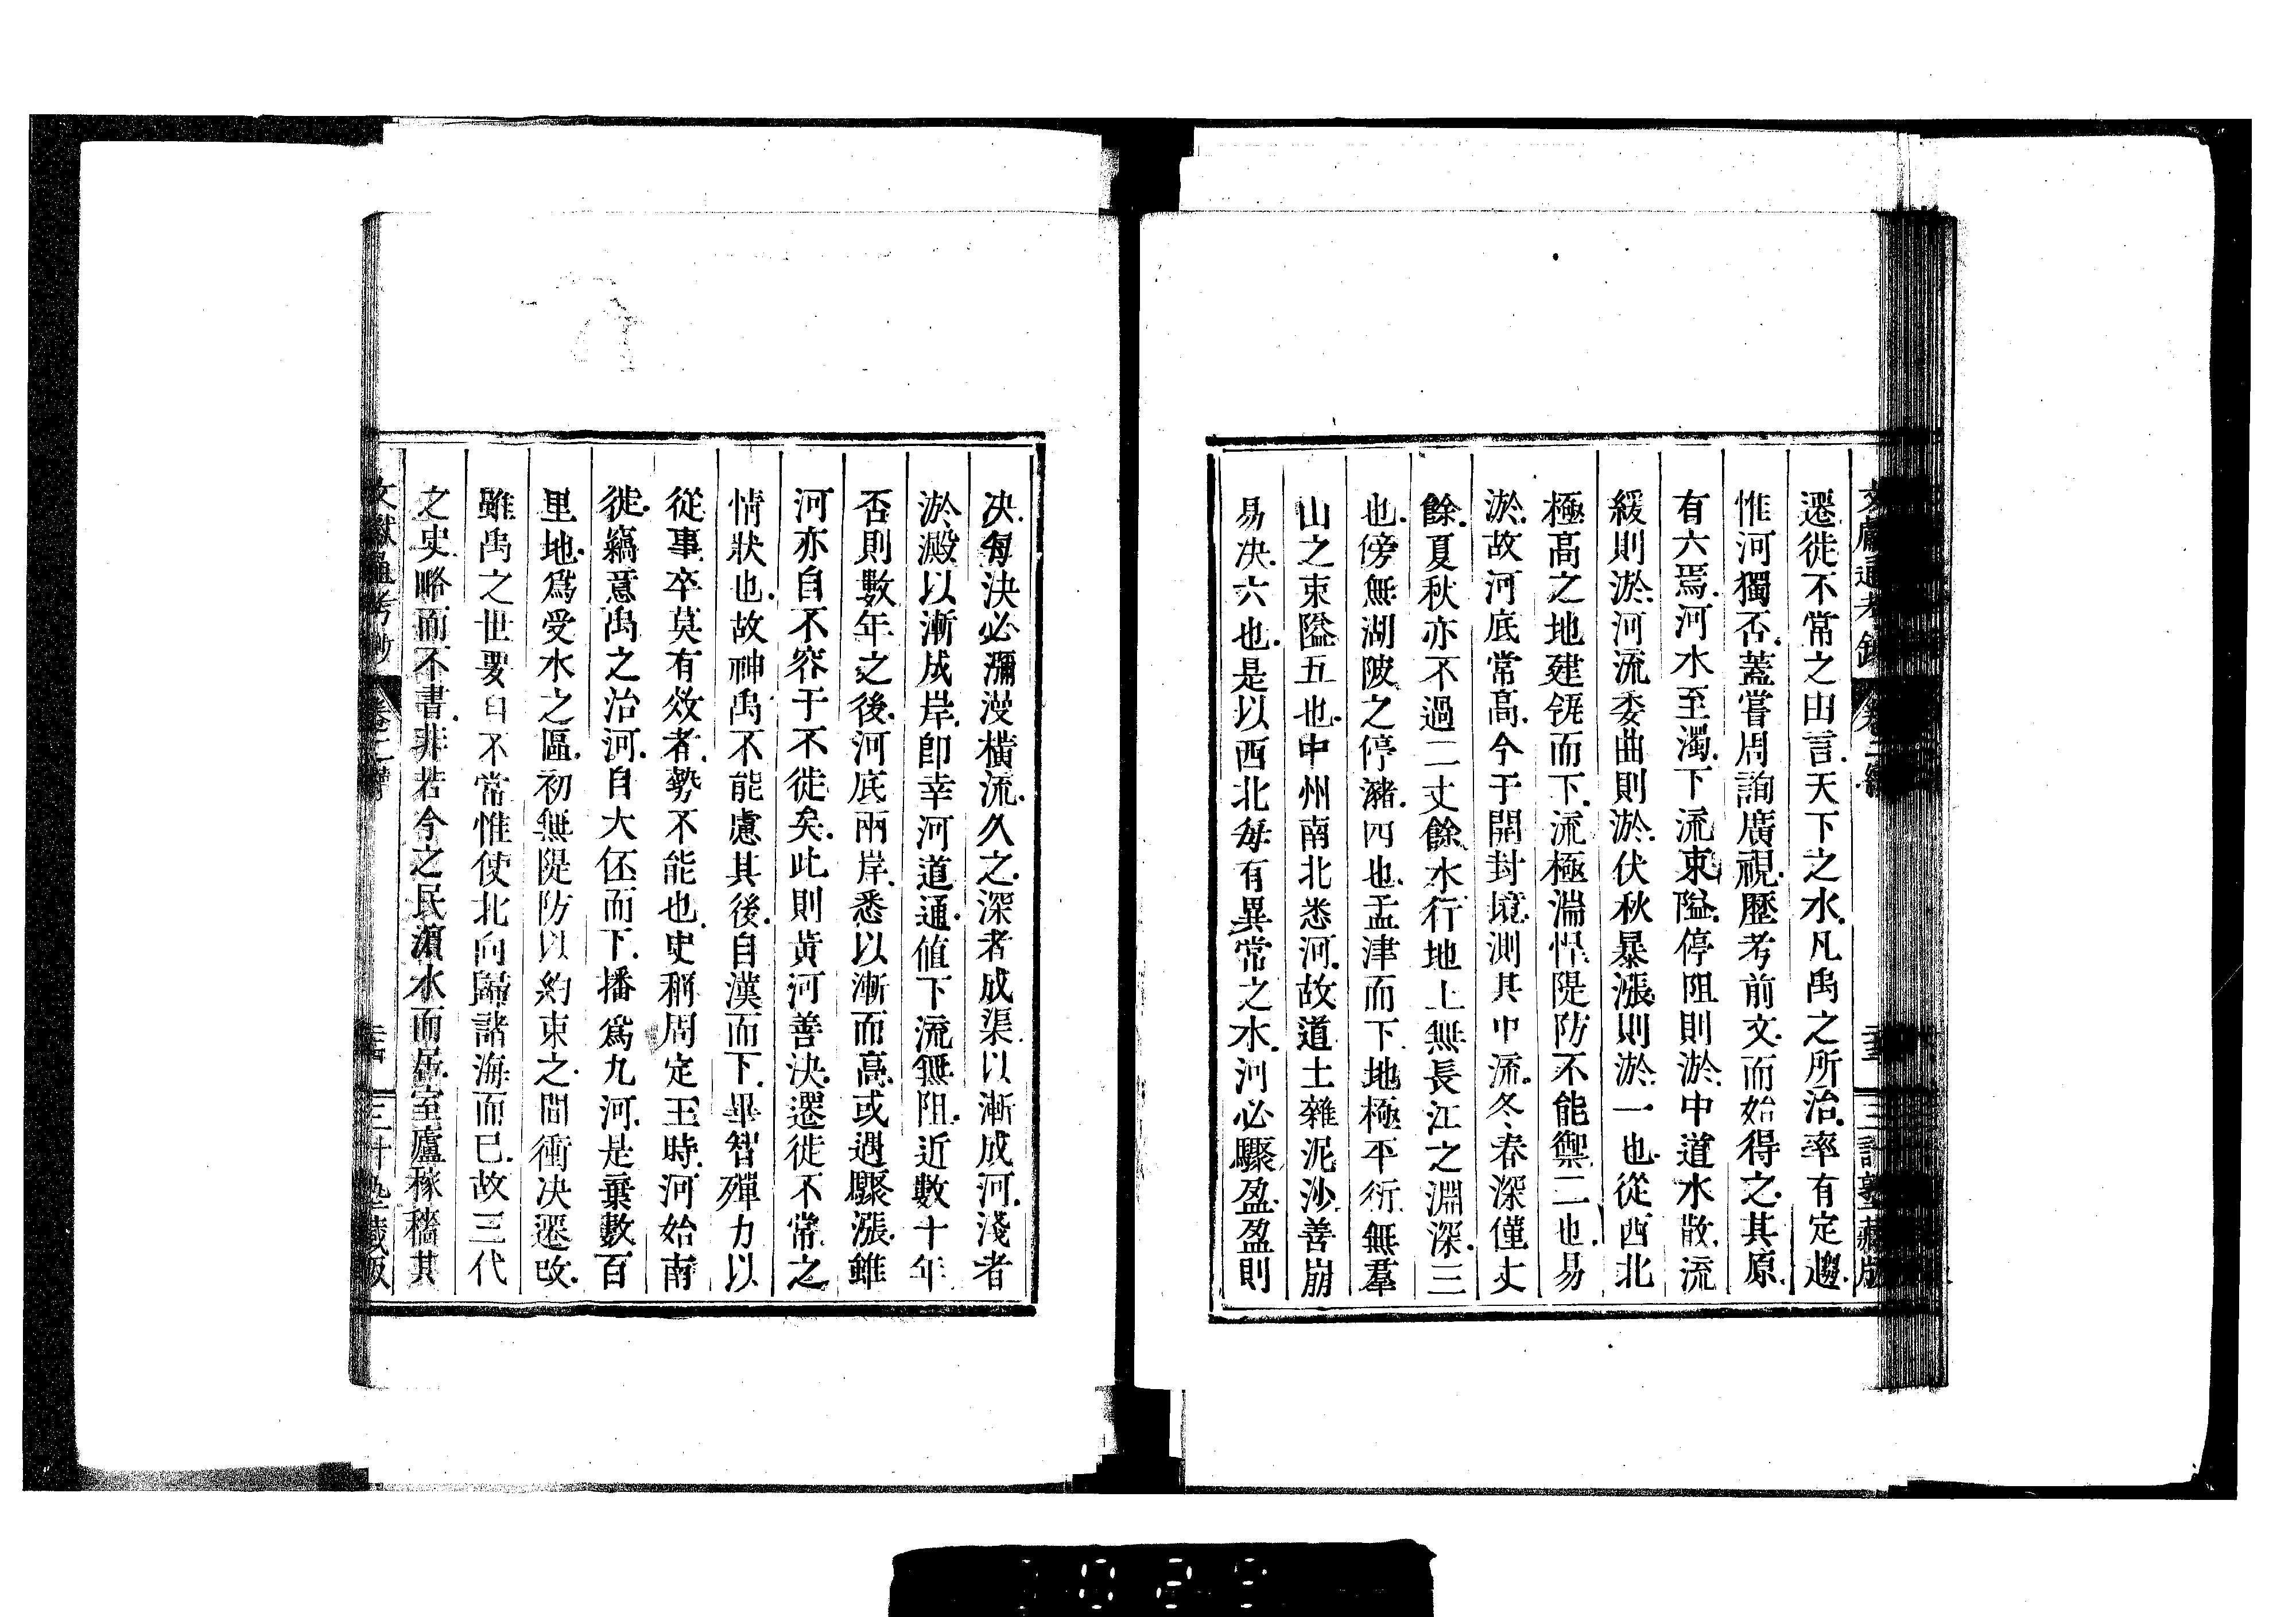 遷徙不常之由言天下之水凡禹之所治率有定趨
惟河獨否蓋嘗周詢廣視歷考前文而始得之其原
有六焉河水至濁下流束隘停阻則淤中道水散流
緩則淤河流委曲則淤伏秋暴漲則淤一也從西北
極高之地建瓴而下流極湍悍隄防不能禦二也易
淤故河底常高今于開封境測其中流冬春深僅丈
餘夏秋亦不過二丈餘水行地上無長江之淵深三
也傍無湖陂之停瀦四也孟津而下地極平衍無羣
山之束隘五也中州南北悉河故道土雜泥沙善崩
易决六也是以西北每有異常之水河必驟盈盈則
决每決必瀰漫橫流久之深者成渠以漸成河淺者
淤澱以漸成岸卽幸河道通值下流無阻近數十年
否則數年之後河底兩岸悉以漸而高或遇驟漲雖
河亦自不容于不徙矣此則黃河善決遷徙不常之
情狀也故神禹不能慮其後自漢而下畢智殫力以
從事卒莫有效者勢不能也史稱周定王時河始南
徙竊意禹之治河自大伾而下播爲九河是棄數百
里地爲受水之區初無隄防以約束之間衝决遷改
雖禹之世要曰不常惟使北向歸諸海而已故三代
之史略而不書非若今之民濵水而居室廬稼穡其
文獻通考 卷之